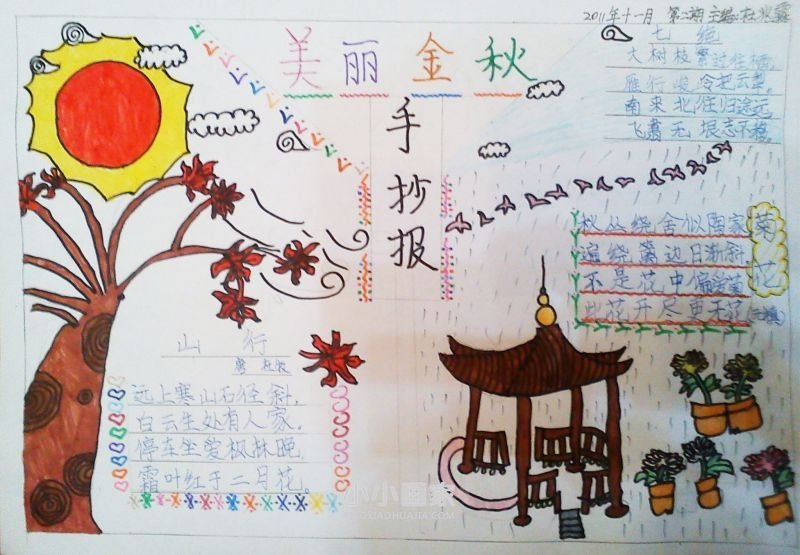 2011年十一月 第二期 主编:杜
美丽金秋
手抄报
七绝
大树枝繁过往
雁行
南来北往归途远
飞
秋丛绕舍似陶家
遍绕篱边日渐斜.
不是花中偏爱菊
此花开尽更无花(元稹)
菊花
山行
唐 杜牧
远上寒山石径斜,
白云生处有人家。
停车坐爱枫林晚,
霜叶红于二月花。
小小画家
XIAOXIAOHUAJIA.COM